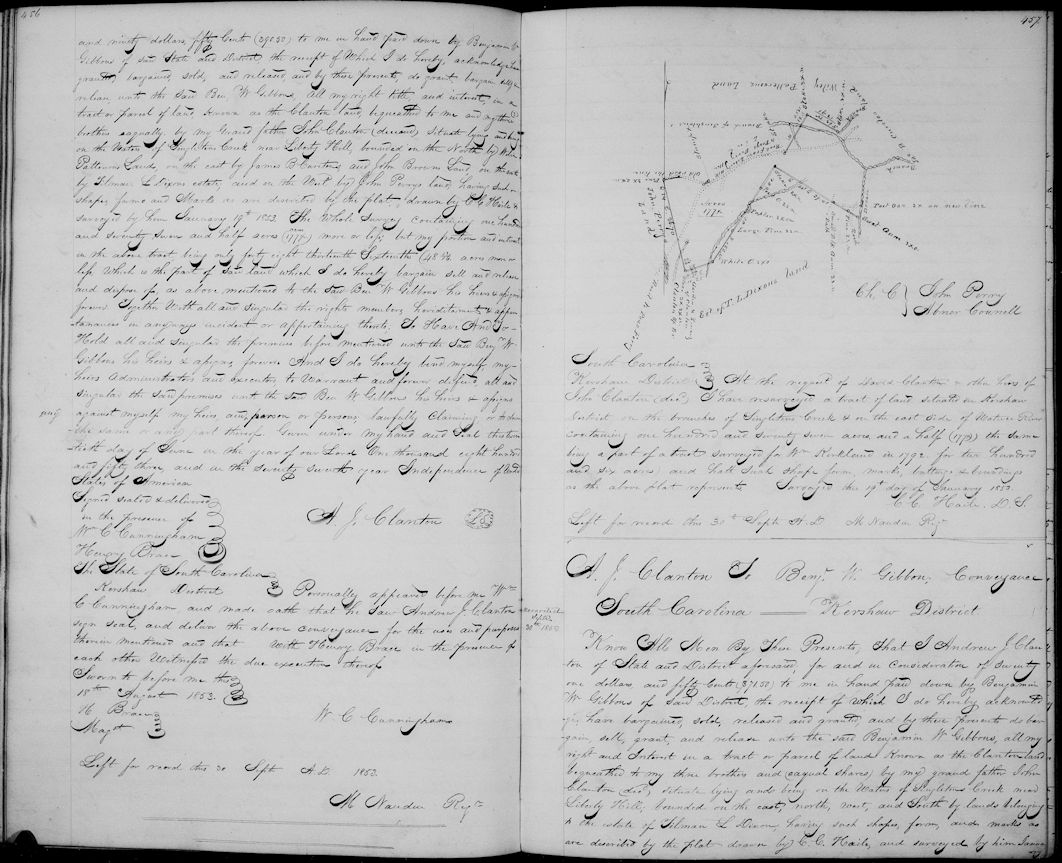 456
and ninety dollars, fifty Cents (390.50) to me in hand paid down by Benjamin W
Gibbons of said State and District, the receipt of Which I do hereby acknowledge have
granted, bargained, sold, and released, and by these presents, do grant bargain sell &
release unto the said Ben. W Gibbons, all my right title, and interest, in a
tract or parcel of land, known as the Clanton land, bequeathed to me and my three
brothers equally by my Grand father John Clanton (deceased) Situate lying and being
on the Waters of Singletons Creek near Liberty Hill, bounded on the North by Wiley
Pattersons Lands, on the east by James B Canters, and John Browns Land, on the south
by Tilman L Dixons estate, and on the West by John Perrys land, having such
shapes, forms and Marks as are described by the plat, drawn by C C Haile &
surveyed by him January 19th 1853. The Whole Survey containing one hundred
and seventy seven and half acres (177½) more or less, but my portion and interest
in the above tract being only forty eight thirteenth Sixteenths (48 13/16) acres more or
less Which is the part of said land which I do hereby bargain sell and release
and dispose of, as above mentioned to the said Ben W Gibbons his heirs & assigns
forever. Together With all and singular the rights members, hereditaments & appur
tenances in anyways incident or appertaining thereto, To Have And To
Hold all and Singular the premises before mentioned unto the said Benj. W
Gibbons his heirs & assigns, forever And I do hereby bind myself, my
heirs Administrators and executors to Warrant and forever defend, all and
singular the said premises unto the said Ben W Gibbons his heirs & assigns
against myself my heirs any person or persons lawfully Claiming or to claim
the same or any part thereof. Given under my hand and Seal this
day of June in the year of our Lord One thousand eight hundred
and fifty three, and in the seventy seventh year Independence of United
States of America
Signed sealed & delivered
in the presence of
Wm C Cunningham
A. J. Clanton LS
Henry Brace
The State of South Carolina
Kershaw District Personally appeared before me Wm
C Cunningham and made oath that he saw Andrew J. Clanton
sign seal, and deliver the above conveyance for the uses and purposes
therein mentioned and that With Henry Brace in the presence of
each other Witnessed the due execution thereof
Sworn to before me this
18th August 1853.
H Brace
W C Cunningham
Magst
Left for record this 30 Sept A.D. 1853.
M Naudin Regr
457
Wiley Pattersons Land
Acres
177½
Large Pine
White Oak
Post Oak 3x on new line
Est of T. L. Dixons land
Ch. C John Perry
Abner Councell
South Carolina
Kershaw District At the request of David Clanton & other heirs of
John Clanton (decd) I have resurveyed a tract of land situate in Kershaw
District on the branches of Singletons Creek & on the east side of Wateree River
containing one hundred and seventy seven acres and a half (177½) the same
being a part of a tract surveyed for Wm Kirkland in 1792 for two hundred
and six acres and hath such shape form, marks, buttings & boundings
as the above plat represents Surveyed this 19th day of January 1853.
C C. Haile. D. S.
Left for record this 30th Sept A. D M Naudin Regr
A. J. Clanton To Benj. W. Gibbons, Conveyance
South Carolina — Kershaw District
Know All Men By These Presents, That I Andrew J. Clan
ton of State and District aforesaid, for and in Consideration of seventy
one dollars, and fifty Cents ($71.50) to me in hand paid down by Benjamin
W Gibbons of said District, the receipt of which I do hereby acknowled
ge, have bargained, sold, released and granted, and by these presents do bar
gain, sell, grant, and release unto the said Benjamin W Gibbons, all my
right and Interest in a tract or parcel of land Known as the Clanton land
bequeathed to my three brothers and (equal shares) by my grand father John
Clanton (decd) situate lying and being on the Waters of Singletons Creek near
Liberty Hill, bounded on the east, north, West, and South by lands belonging
to the estate of Tilman L Dixon, having such shapes, form, and marks as
are described by the plat drawn by C. C. Haile, and surveyed by him Janua